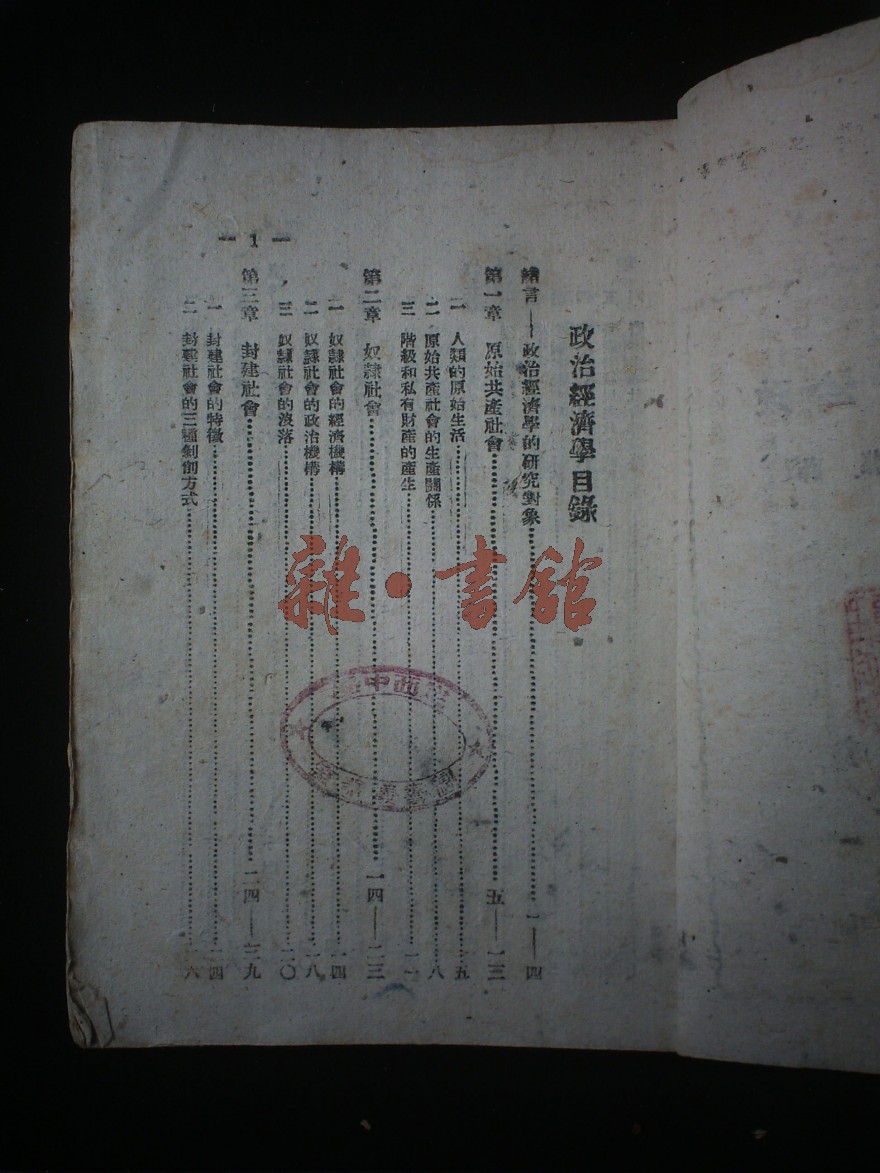 政治經濟學目錄
緒言——政治經濟學的研究對象……一——四
第一章 原始共產社會……五——一三
一 人類的原始生活……五
二 原始共產社會的生產關係……八
三 階級和私有財產的產生……一一
第二章 奴隸社會……一四——二三
一 奴隸社會的經濟機構……一四
二 奴隸社會的政治機構……一八
三 奴隸社會的沒落……二〇
第三章 封建社會……二四——三九
一 封建社會的特徵……二四
二 封建社會的三種剝削方式……二六
— 1 —
雜·書館